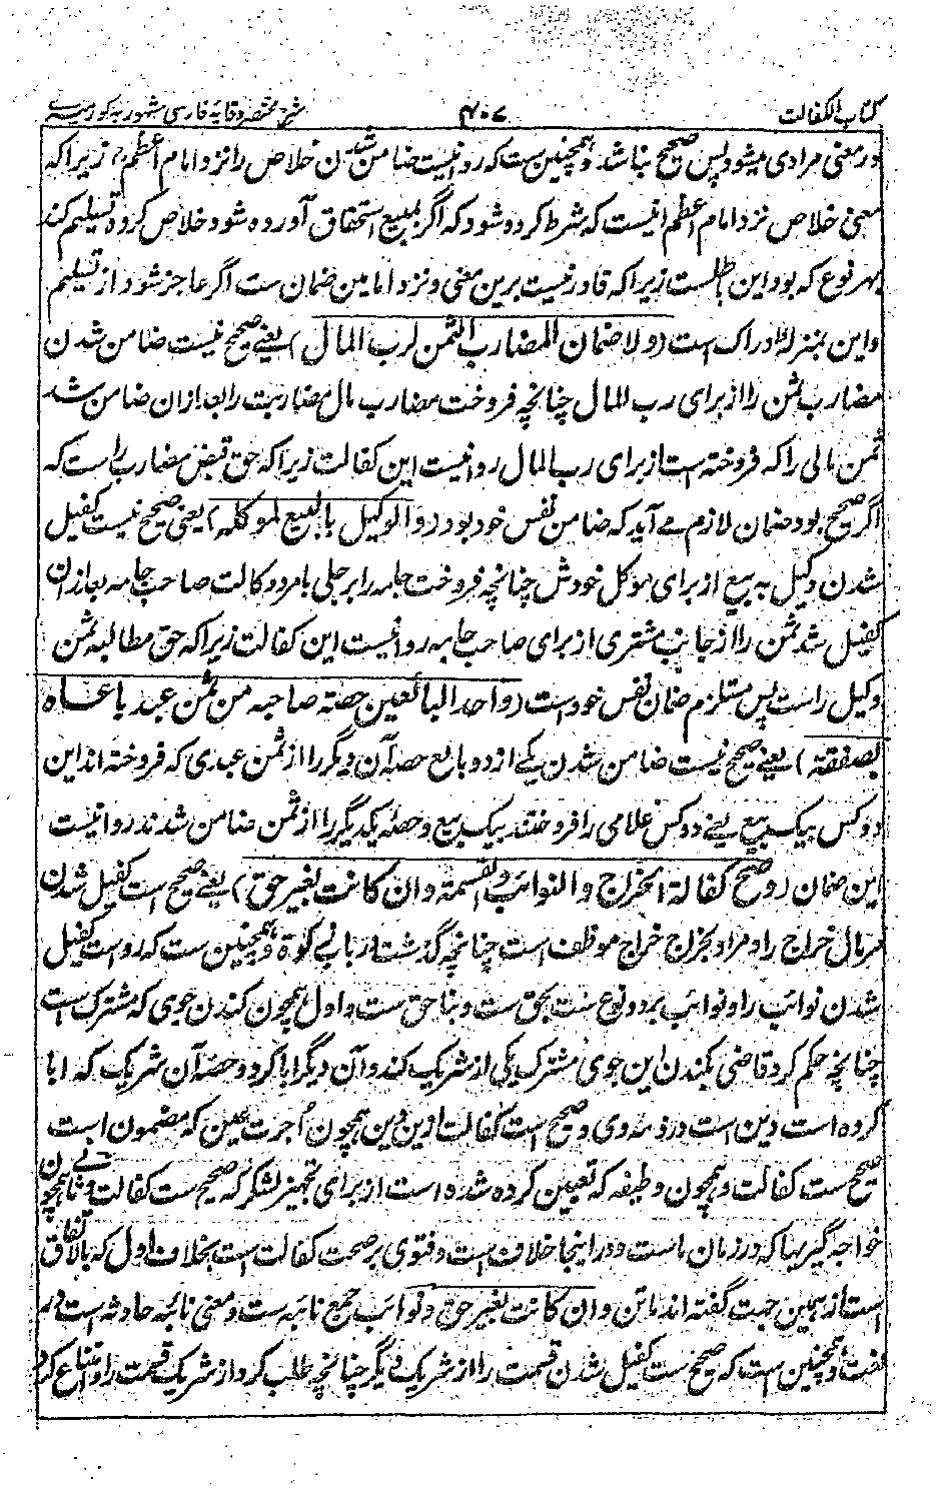 کتاب الکفالت ۴۰۷ شرح مختصر وقایه فارسی مشهور به کور میری
در معنی مرادی میشود پس صحیح نباشد و همچنین ست که روا نیست ضامن شدن خلاص را نزد امام اعظم رح زیرا که
معنی خلاص نزد امام اعظم انیست که شرط کرده شود که اگر مبیع استحقاق آورده شود خلاص کرده تسلیم کند
بهر نوع که بود این باطلست زیرا که قادر نیست برین معنی و نزد امامین ضمان ست اگر عاجز شود از تسلیم
و این بمنزله ادراک است (ولا ضمان المضارب الثمن لرب المال) یعنے صحیح نیست ضامن شدن
مضارب ثمن را از برای رب المال چنانچه فروخت مضارب مال مضاربت را بعد ازان ضامن شد
ثمن مالی را که فروخته است از برای رب المال روا نیست این کفالت زیرا که حق قبض مضارب راست که
اگر صحیح بود ضمان لازم مے آید که ضامن نفس خود بود (و الوکیل بالبیع لموکله) یعنی صحیح نیست کفیل
شدن وکیل به بیع از برای موکل خودش چنانچه فروخت جامه را بر جلی بامر و وکالت صاحب جامه بعد ازان
کفیل شد ثمن را از جانب مشتری از برای صاحب جامه روا نیست این کفالت زیرا که حق مطالبه ثمن
وکیل راست پس مستلزم ضمان نفس خود است (و احد البائعین حصة صاحبه من ثمن عبد باعاه
بصفقة) یعنے صحیح نیست ضامن شدن یکے از دو بائع حصه آن دیگر را از ثمن عبدی که فروخته اند این
دو کس بیک بیع یعنے دو کس غلامی را فروختند بیک بیع و حصه یکدیگر را از ثمن ضامن شدند روا نیست
این ضمان (و صح کفالة الخراج و النوائب و القسمة و ان کانت بغیر حق) یعنے صحیح است کفیل شدن
مر مال خراج را و مراد بخراج خراج موظف است چنانچه گذشت در باب زکوة و همچنین ست که رواست کفیل
شدن نوائب را و نوائب بر دو نوع ست بحق ست و بناحق ست و اول همچون کندن جوی که مشترک است
چنانچه حکم کرد قاضی بکندن این جوی مشترک یکی از شریک کند و آن دیگر ابا کرد و حصه آن شریک که ابا
کرده است دین است در ذمه وی و صحیح است کفالت ازین دین همچون اجرت عین که مضمون است
صحیح ست کفالت و همچون وظیفه که تعیین کرده شده است از برای تجهیز لشکر که صحیح ست کفالت و ثانی همچون
خواجه گیریها که در زمان ماست و در اینجا خلاف است و فتوی بر صحت کفالت است بخلاف اول که بالاتفاق
است از همین جهت گفته اند ماتن و ان کانت بغیر حق و نوائب جمع نائبه ست و معنی نائبه حادثه است در
لغت و همچنین است که صحیح ست کفیل شدن قسمت را از شریک دیگر چنانچه طلب کرد از شریک قسمت را و امتناع کرد